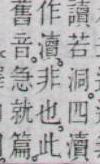 讀若洞。四瀆
作瀆。非也。此
舊音。急就篇